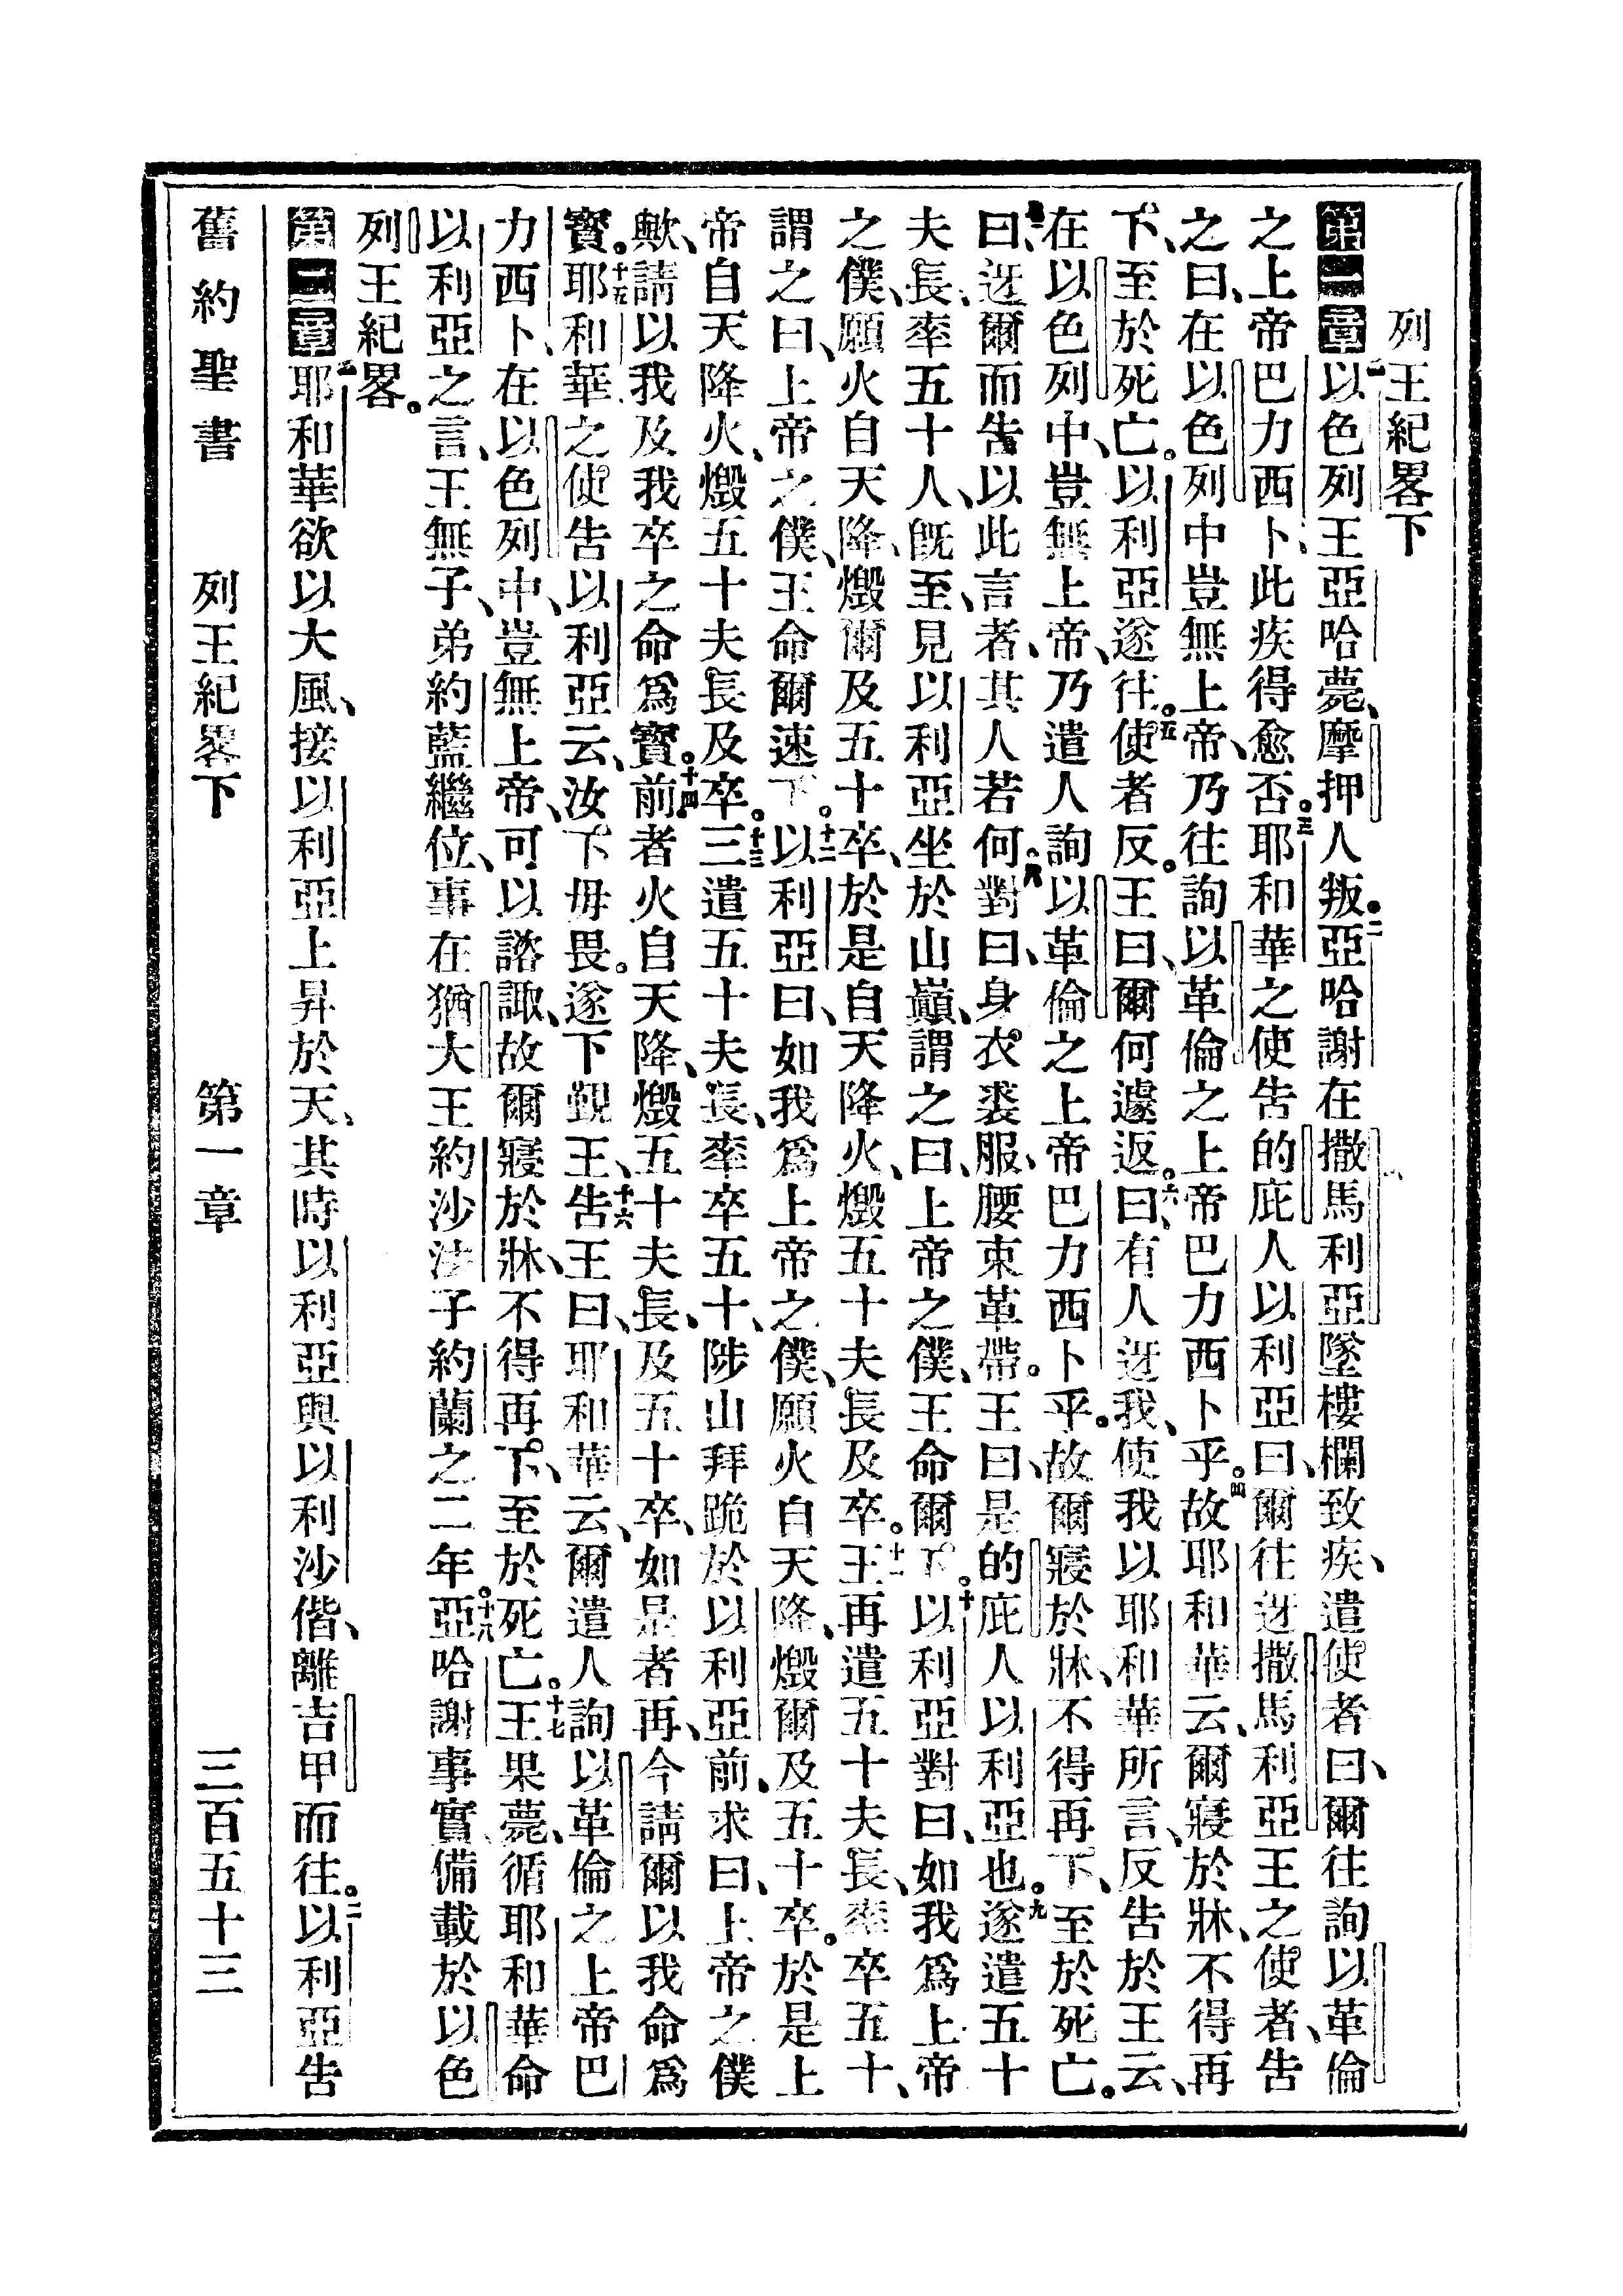 列王紀畧下
第一章一以色列王亞哈薨、摩押人叛。二亞哈謝在撒馬利亞墜樓欄致疾、遣使者曰、爾往詢以革倫
之上帝巴力西卜、此疾得愈否。三耶和華之使告的庇人以利亞曰、爾往迓撒馬利亞王之使者、告
之曰、在以色列中豈無上帝、乃往詢以革倫之上帝巴力西卜乎。四故耶和華云、爾寢於牀、不得再
下、至於死亡。以利亞遂往。五使者反。王曰、爾何遽返。六曰、有人迓我、使我以耶和華所言、反告於王云、
在以色列中、豈無上帝、乃遣人詢以革倫之上帝巴力西卜乎。故爾寢於牀、不得再下、至於死亡。
曰、迓爾而告以此言者、其人若何。八對曰、身衣裘服、腰束革帶。王曰、是的庇人以利亞也。九遂遣五十
夫長、率五十人、旣至、見以利亞坐於山巔、謂之曰、上帝之僕、王命爾下。十以利亞對曰、如我爲上帝
之僕、願火自天降、燬爾及五十卒、於是自天降火、燬五十夫長及卒。十一王再遣五十夫長、率卒五十、
謂之曰、上帝之僕、王命爾速下。十二以利亞曰、如我爲上帝之僕、願火自天降、燬爾及五十卒。於是上
帝自天降火、燬五十夫長及卒。十三三遣五十夫長、率卒五十、陟山拜跪於以利亞前、求曰、上帝之僕
歟、請以我及我卒之命爲寶。十四前者火自天降、燬五十夫長、及五十卒、如是者再、今請爾以我命爲
寶。十五耶和華之使告以利亞云、汝下毋畏。遂下覲王、十六告王曰、耶和華云、爾遣人詢以革倫之上帝巴
力西卜、在以色列中、豈無上帝、可以諮諏、故爾寢於牀、不得再下、至於死亡。十七王果薨、循耶和華命
以利亞之言、王無子、弟約藍繼位、事在猶大王約沙法子約蘭之二年。十八亞哈謝事實、備載於以色
列王紀畧。
第二章一耶和華欲以大風、接以利亞上昇於天、其時以利亞與以利沙偕、離吉甲而往。二以利亞告
舊約聖書 列王紀畧下 第一章 三百五十三